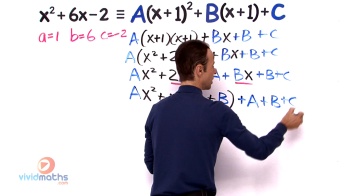 x² + 6x - 2 ≡ A(x+1)² + B(x+1) + C
a=1 b=6 c=-2
A(x+1)(x+1) + Bx + B + C
A(x²+2 A + Bx + B + C
Ax² + B) + A + B + C
vividmaths
.com